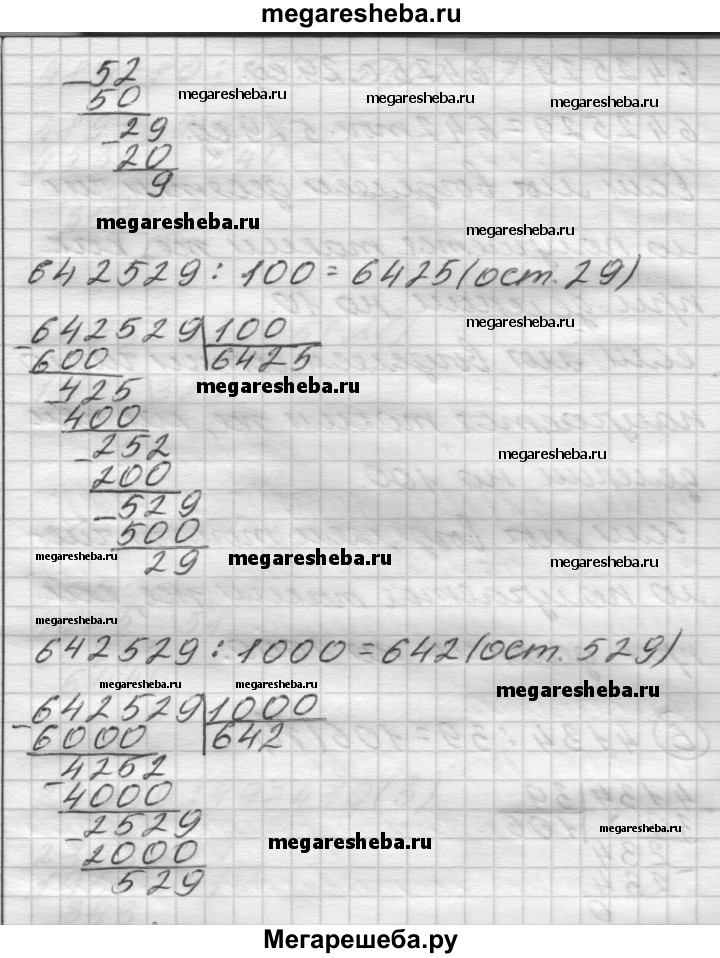 megaresheba.ru
52
megaresheba.ru megaresheba.ru megaresheba.ru
50
29
20
9
megaresheba.ru megaresheba.ru
642529 : 100 = 6425 (ост. 29)
megaresheba.ru
642529 100
600 6425
megaresheba.ru
425
400
252 megaresheba.ru
200
529
500
megaresheba.ru megaresheba.ru megaresheba.ru
29
megaresheba.ru
642529 : 1000 = 642 (ост. 529)
megaresheba.ru megaresheba.ru megaresheba.ru
642529 1000
6000 642
4252
4000
2529 megaresheba.ru
megaresheba.ru
2000
529
Мегарешеба.ру